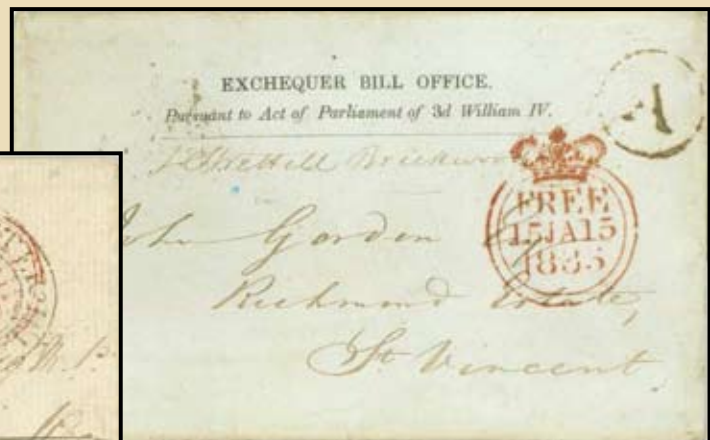 EXCHEQUER BILL OFFICE.
Pursuant to Act of Parliament of 3d William IV.
A
FREE
15JA15
1835
John Gordon
Richmond Estate,
St Vincent